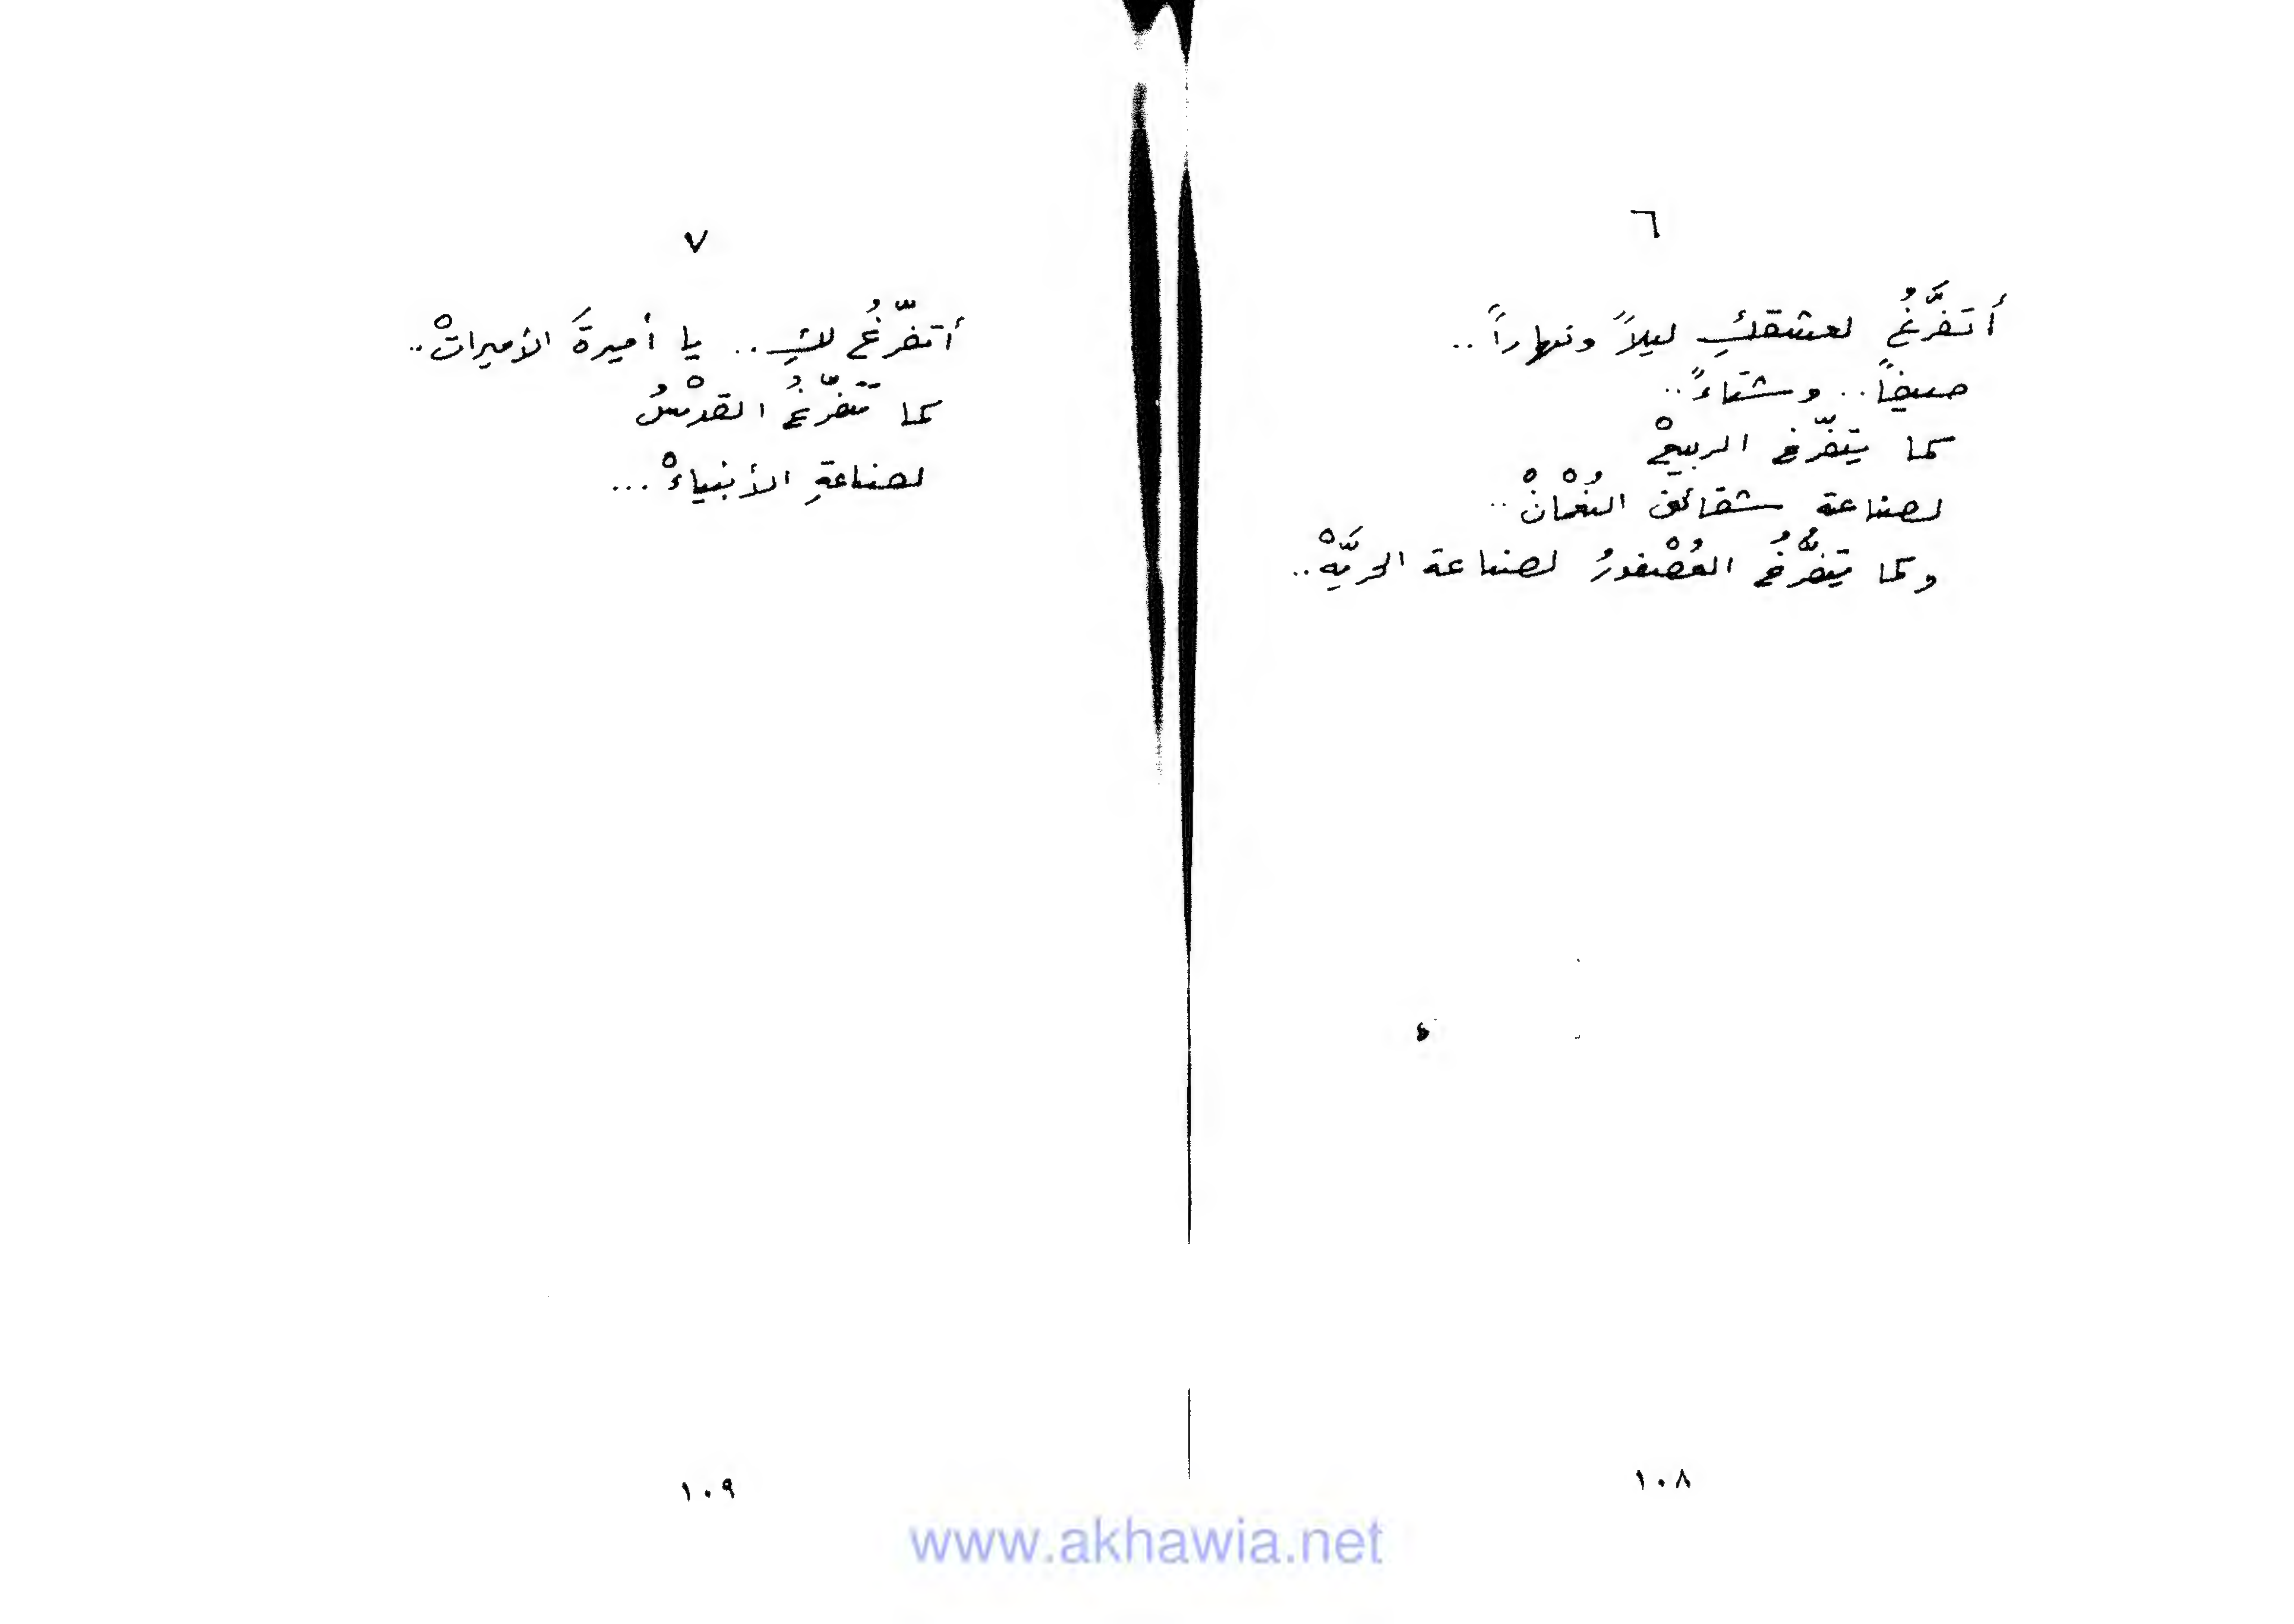 ٦
أتفرَّغُ لعشقكِ ليلاً ونهاراً ..
صيفاً .. وشتاءً ..
كما يتفرّغ الربيعْ
لصناعة شقائق النُعْمانْ ..
وكما يتفرَّغُ العُصْفورُ لصناعة الحريَّهْ ..
١٠٨
٧
أتفرّغُ لكِ .. يا أميرةَ الأميراتْ ..
كما تتفرّغُ القدْسُ
لصناعةِ الأنبياءْ ...
١٠٩
www.akhawia.net